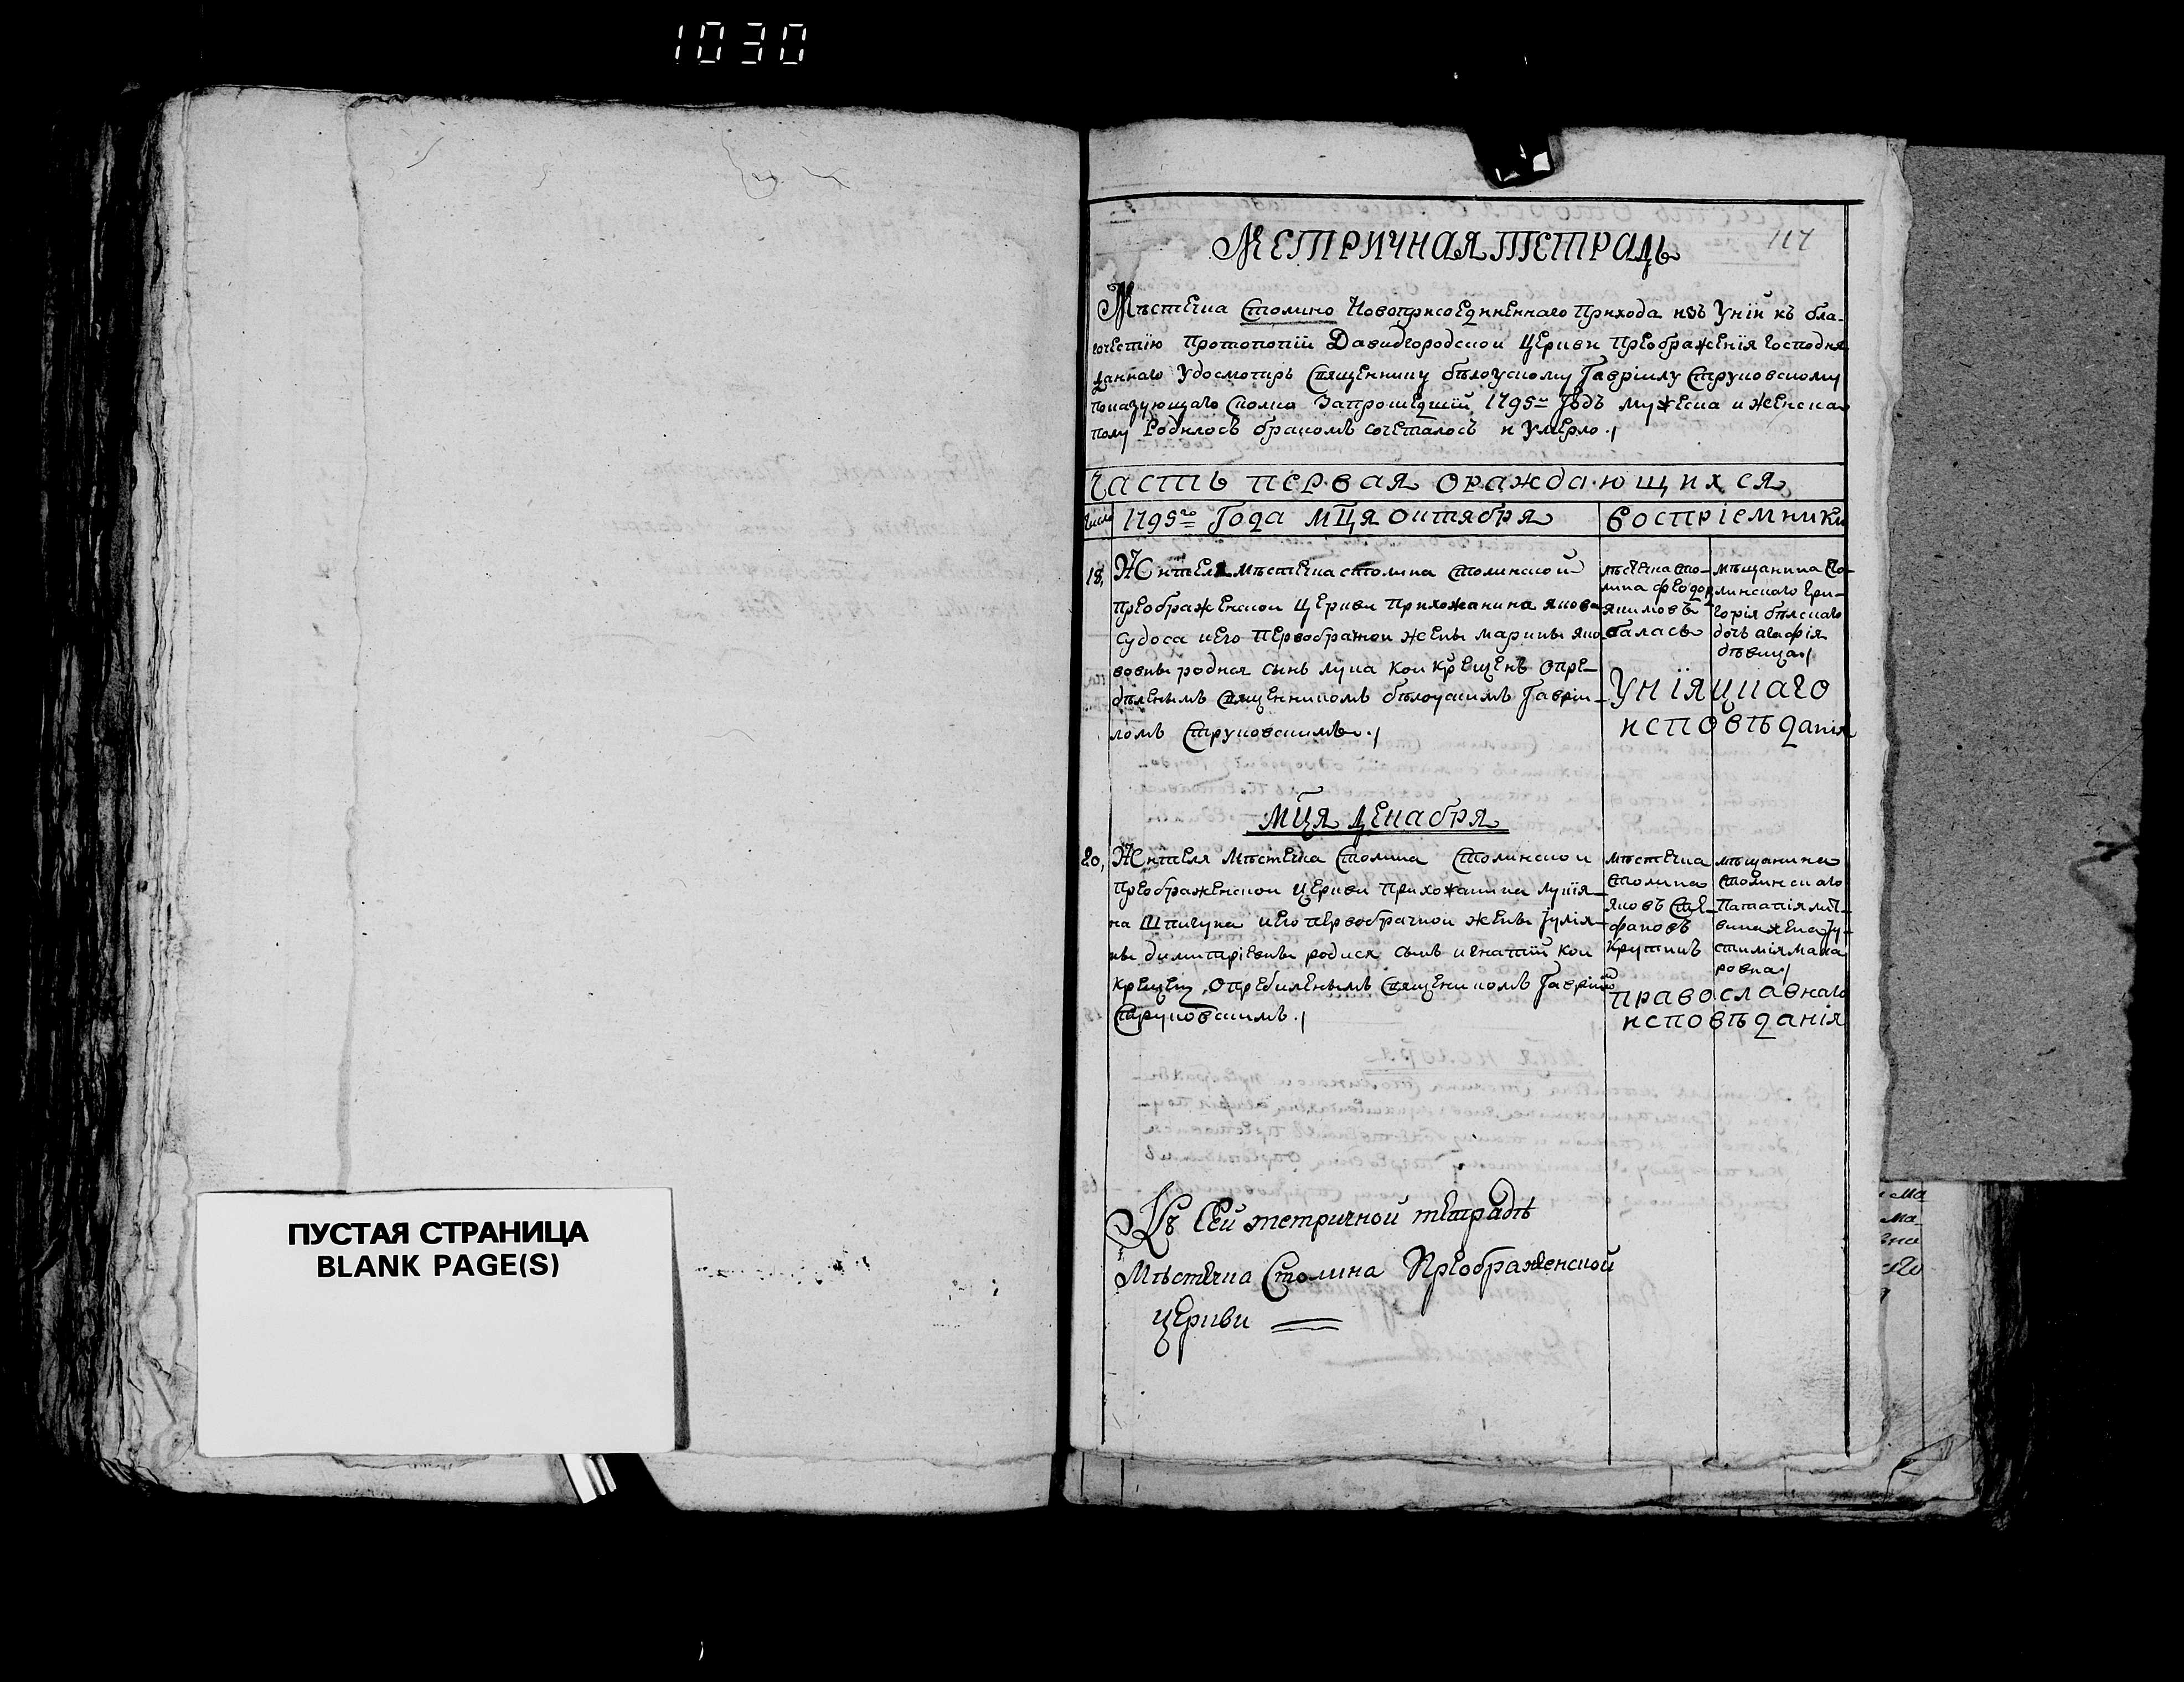 1030
ПУСТАЯ СТРАНИЦА
BLANK PAGE(S)
117
МЕТРИЧНАЯ ТЕТРАДЬ
Мѣстечка Столино Новоприсоединеннаго Прихода изъ Унiи къ бла-
гочестiю Протопопiи Давидгородской Церкви Преображенiя Господня
даннаго Священнику бѣлоускому Гаврiилу Струковскому
показующаго Сколко Запрошедшiй 1795го Годъ мужеска и женска
полу Родилось бракомъ сочеталось и Умерло./
Часть первая о раждающихся
Число 1795го Года мця октября Воспрiемники
18, Жителя мѣстечка столина Столинской
Преображенской Церкви Прихожанина Якова
Судоса иего Первобрачной жены марины Яко-
вовны родися сынъ лука кой крещенъ Опре-
дѣленымъ Священникомъ бѣлоускимъ Гаврiи-
ломъ Струковскимъ./
мѣстечка Сто-
лина феодор
Якимовъ
баласъ
мѣщанина Сто-
линскаго Гри-
горiя бѣлскаго
дочь агафiя
дѣвица./
Унiяцкаго
исповѣданiя
мця декабря
20, Жителя Мѣстечка Столина Столинской
Преображенской Церкви Прихожанина Лукiя-
на Шпигуна иего первобрачной жены Iулiя-
ны димитрiевны родися сынъ игнатiй кой
Крещен Опредиленымъ Священикомъ Гаврiило
Струковскимъ./
мѣстечка
Столина
Яковъ Сте-
фановъ
Крутинъ
мѣщанина
Столинскаго
Потапiя лит-
вина жена Iу-
стимiя мака
ровна/
православнаго
исповѣданiя
Къ Сей метричной тетрадѣ
Мѣстечка Столина Преображенской
Церкви